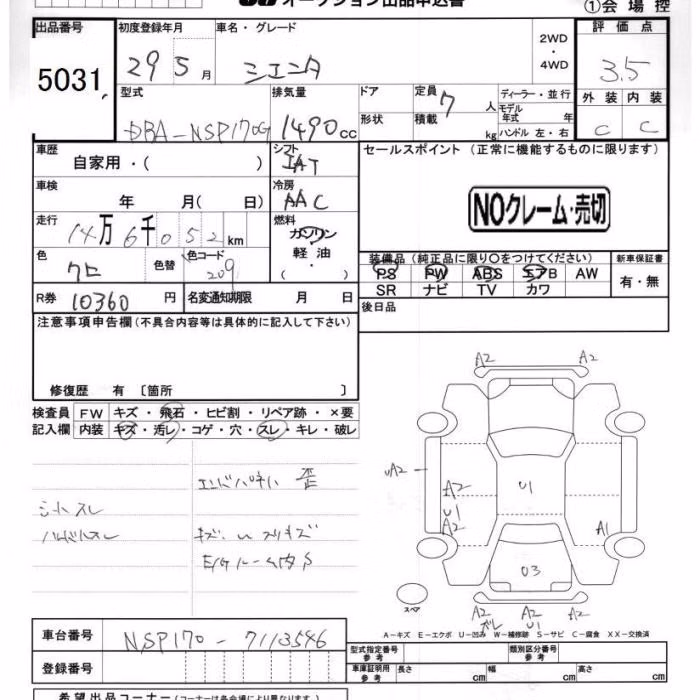 オークション出品申込書
①会場控
出品番号
5031
初度登録年月
29 5月
車名・グレード
シエンタ
2WD
・
4WD
評価点
3.5
外装 内装
C C
型式
DBA-NSP170G
排気量
1490cc
ドア
形状
定員
7人
積載
kg
ディーラー・並行
モデル年式 年
ハンドル 左・右
車歴
自家用・( )
シフト
IAT
セールスポイント (正常に機能するものに限ります)
NOクレーム・売切
車検
年 月( 日)
冷房
AAC
走行
14万6千052km
燃料
ガソリン
軽油・
・
色
クロ
色替
色コード
209
装備品 (純正品に限り○をつけてください)
PS PW ABS エアB AW
SR ナビ TV カワ
新車保証書
有・無
R券
10360円
名変通知期限 月 日
後日品
注意事項申告欄(不具合内容等は具体的に記入して下さい)
修復歴 有 〔箇所 〕
検査員記入欄
FW キズ・飛石・ヒビ割・リペア跡・×要
内装 キズ・汚レ・コゲ・穴・スレ・キレ・破レ
シートスレ
ハンドルスレ
エンドパネル 歪
キズ、U スリキズ
E/Gルーム内S
A2 A2
UA2
A2
U1
A2
U1
A1
U3
スペア
A2 A2 A2
ガレ U1
A-キズ E-エクボ U-凹み W-補修跡 S-サビ C-腐食 XX-交換済
車台番号
NSP170-7113546
登録番号
型式指定番号
参考
類別区分番号
参考
車庫証明用
参考
長さ cm
幅 cm
高さ cm
希望出品コーナー(コーナーは各会場により異なります。)